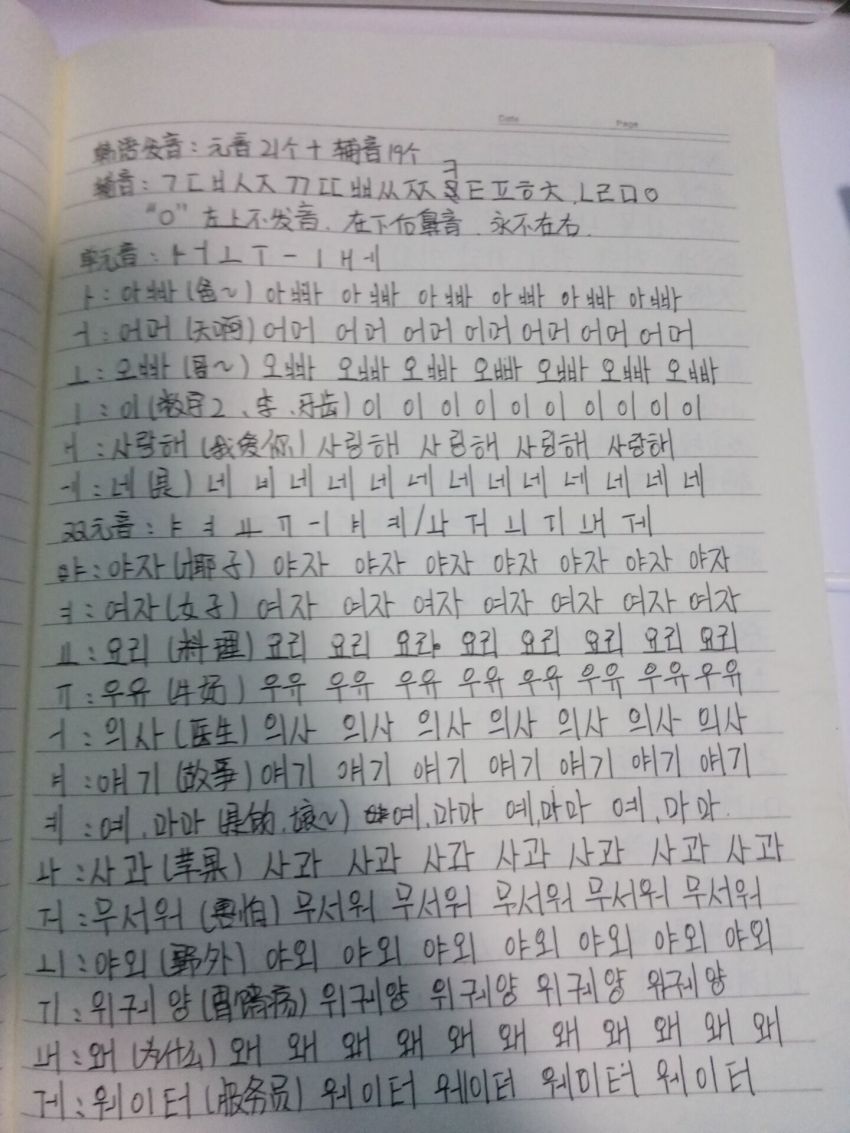 Date Page
韩语发音：元音21个+辅音19个
辅音：ㄱㄷㅂㅅㅈㄲㄸㅃㅆㅉㅋㅌㅍㅎㅊ,ㄴㄹㅁㅇ
"ㅇ"左上不发音,在下后鼻音,永不在右.
单元音：ㅏㅓㅗㅜㅡㅣㅐㅔ
ㅏ:아빠(爸~)아빠 아빠 아빠 아빠 아빠 아빠
ㅓ:어머(天啊)어머 어머 어머 어머 어머 어머 어머
ㅗ:오빠(哥~)오빠 오빠 오빠 오빠 오빠 오빠 오빠
ㅣ:이(数字2、李、牙齿)이 이 이 이 이 이 이 이 이 이
ㅐ:사랑해(我爱你)사랑해 사랑해 사랑해 사랑해
ㅔ:네(是)네 네 네 네 네 네 네 네 네 네 네 네
双元音:ㅑㅕㅛㅠㅢㅒㅖ/ㅘㅝㅚㅟㅙㅞ
ㅑ:야자(椰子)야자 야자 야자 야자 야자 야자 야자
ㅕ:여자(女子)여자 여자 여자 여자 여자 여자 여자
ㅛ:요리(料理)요리 요리 요리 요리 요리 요리 요리 요리
ㅠ:우유(牛奶)우유 우유 우유 우유 우유 우유 우유 우유
ㅢ:의사(医生)의사 의사 의사 의사 의사 의사 의사
ㅒ:얘기(故事)얘기 얘기 얘기 얘기 얘기 얘기 얘기
ㅖ:예,마마(是的,娘~)예,마마 예,마마 예,마마.
ㅘ:사과(苹果)사과 사과 사과 사과 사과 사과 사과
ㅝ:무서워(害怕)무서워 무서워 무서워 무서워 무서워
ㅚ:야외(野外)야외 야외 야외 야외 야외 야외 야외
ㅟ:위궤양(胃溃疡)위궤양 위궤양 위궤양 위궤양
ㅙ:왜(为什么)왜 왜 왜 왜 왜 왜 왜 왜 왜 왜
ㅞ:웨이터(服务员)웨이터 웨이터 웨이터 웨이터